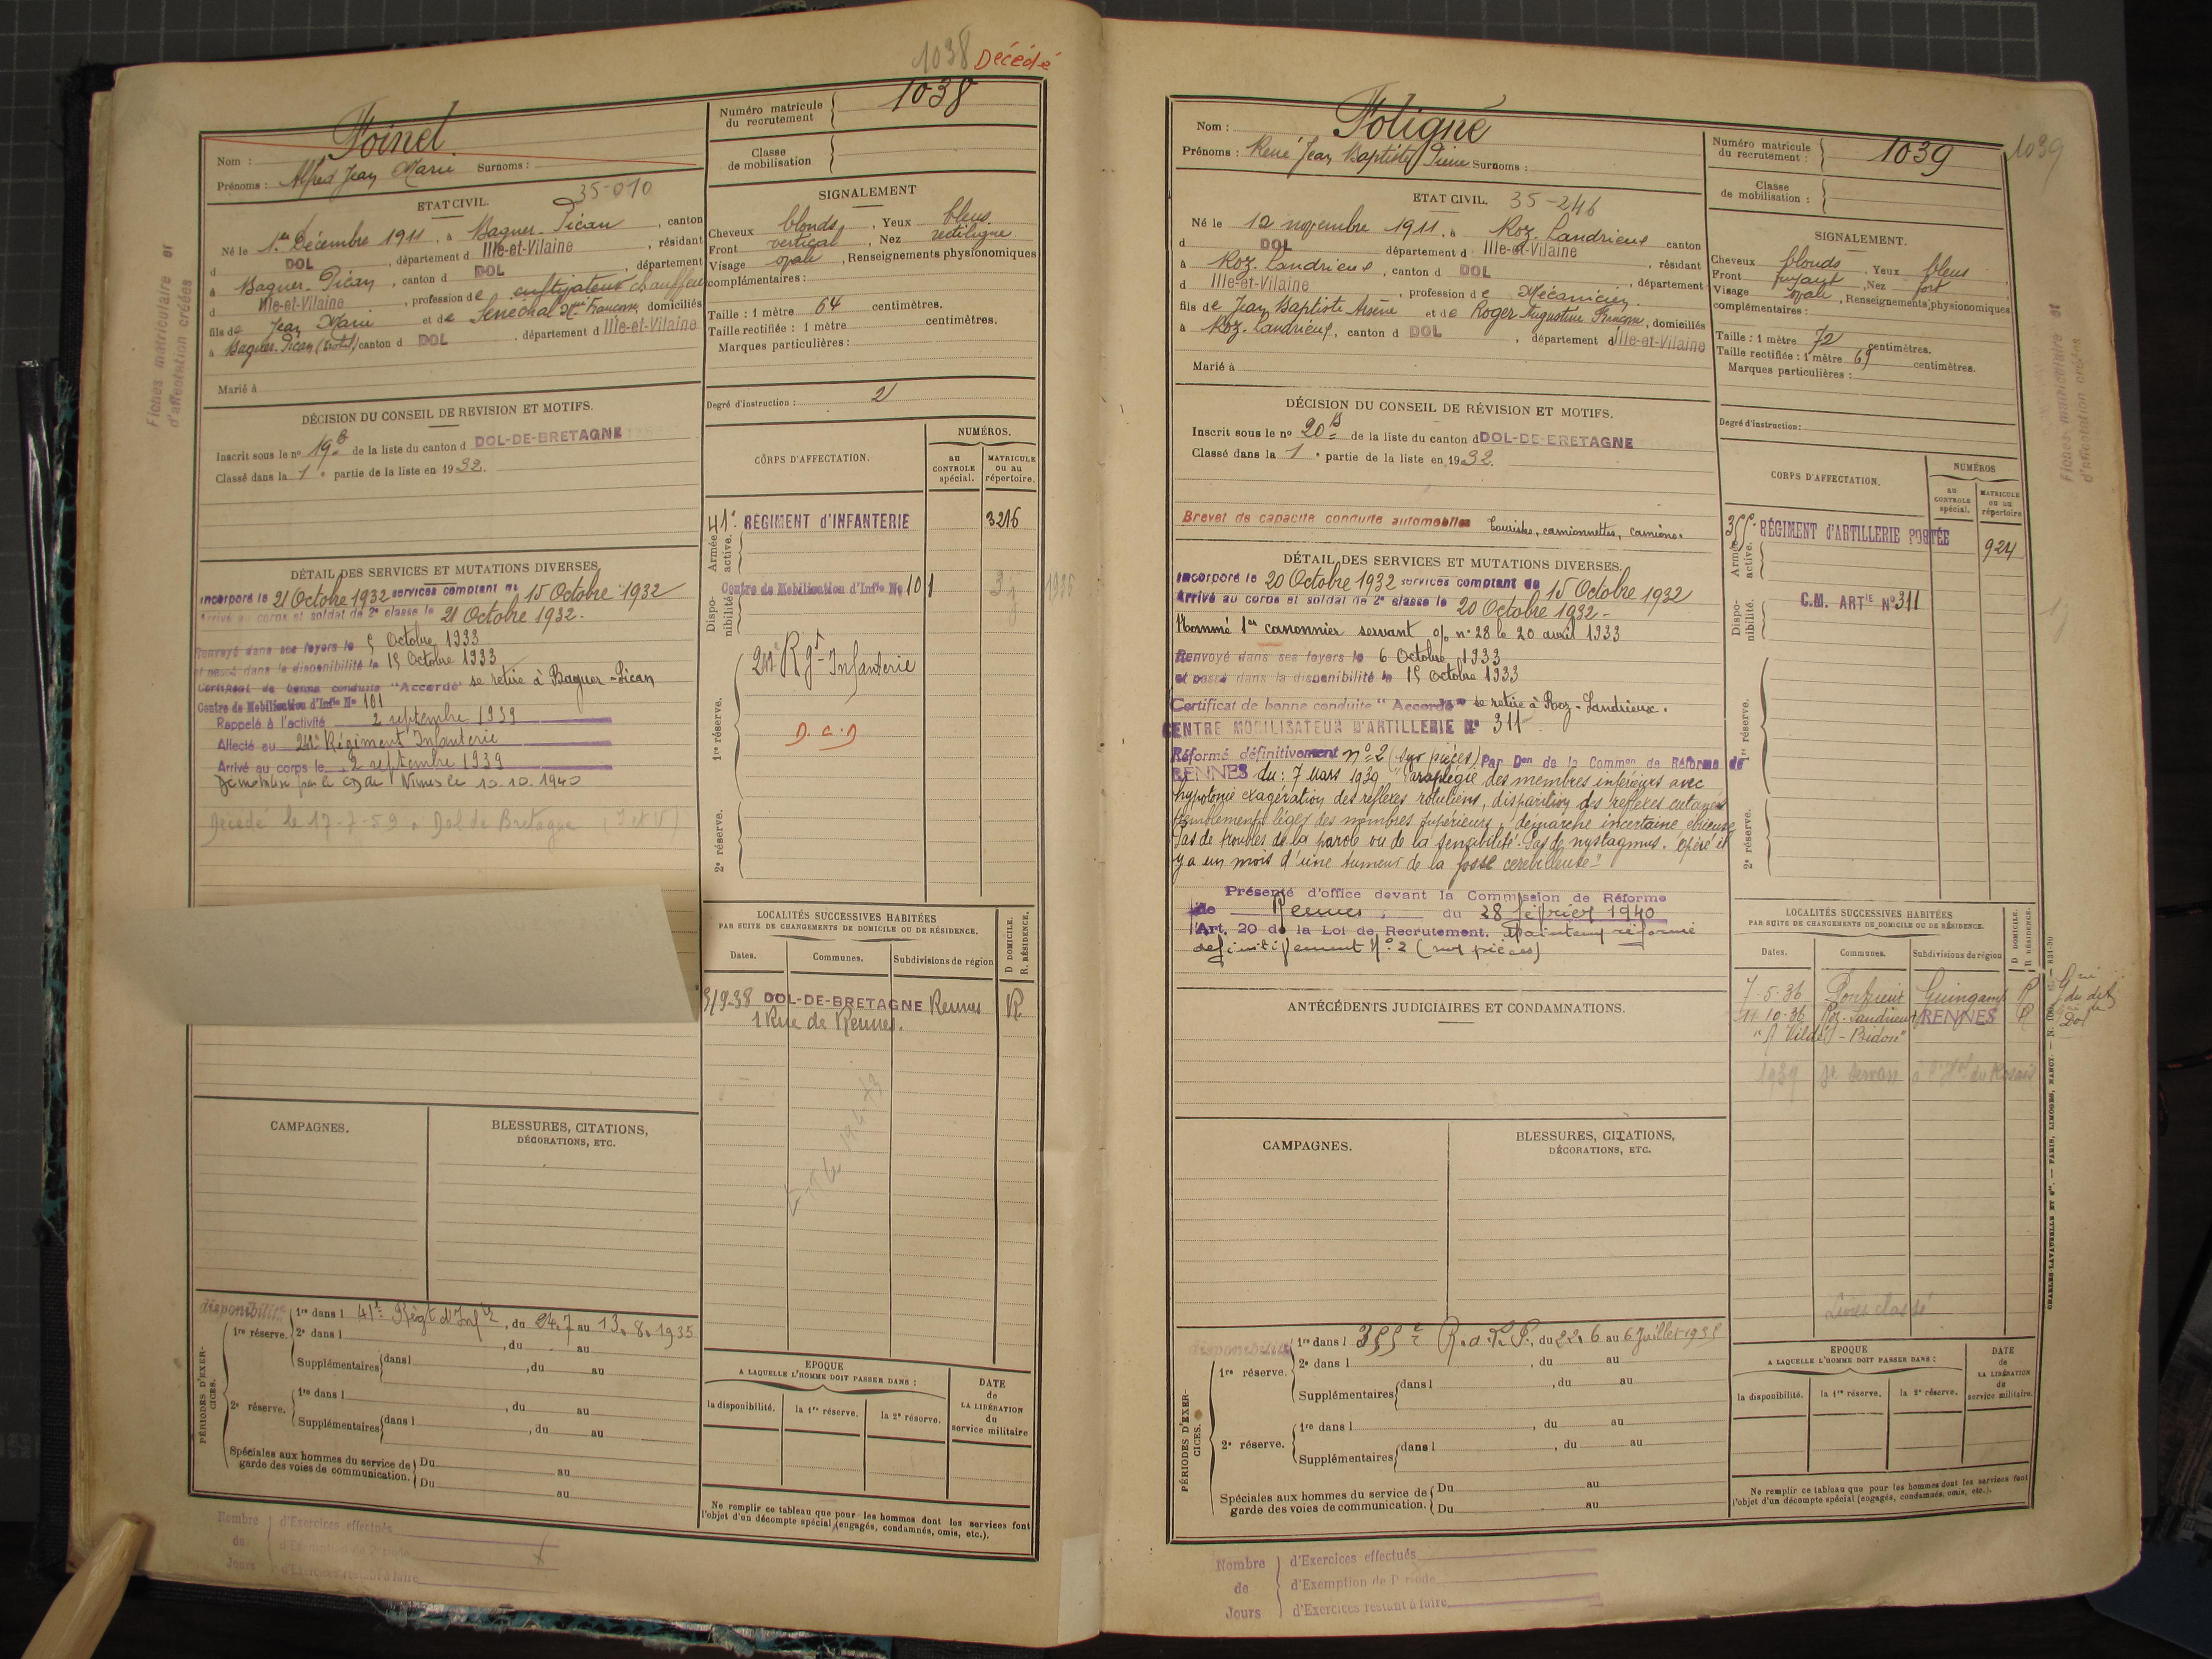 1038 Décédé
Foinel
Nom :
Prénoms : Alfred Jean Marie Surnoms :
35-010
ETAT CIVIL.
Né le 1er Décembre 1911, à Baguer-Pican, canton
d DOL, département d Ille-et-Vilaine, résidant
à Baguer-Pican, canton d DOL, département
d Ille-et-Vilaine, profession de cultivateur chauffeur
fils de Jean Marie et de Sénéchal Françoise, domiciliés
à Baguer-Pican canton d DOL, département d Ille-et-Vilaine
Marié à
DÉCISION DU CONSEIL DE REVISION ET MOTIFS.
Inscrit sous le n° 19 de la liste du canton d DOL-DE-BRETAGNE
Classé dans la 1e partie de la liste en 1932.
DÉTAIL DES SERVICES ET MUTATIONS DIVERSES.
Incorporé le 21 Octobre 1932 services comptant du 15 Octobre 1932
Arrivé au corps et soldat de 2e classe le 21 Octobre 1932.
Renvoyé dans ses foyers le 5 Octobre 1933
et passé dans la disponibilité le 15 Octobre 1933
Certificat de bonne conduite "Accordé" se retire à Baguer-Pican
Centre de Mobilisation d'Infie No 101
Rappelé à l'activité 2 septembre 1939
Affecté au 241e Régiment Infanterie
Arrivé au corps le 2 septembre 1939
Démobilisé par le CD de Nimes le 10.10.1940
Décédé le 17-7-59 à Dol de Bretagne (I et V)
CAMPAGNES.
BLESSURES, CITATIONS,
DÉCORATIONS, ETC.
PÉRIODES D'EXERCICES.
disponibilité
1re réserve.
1re dans l 41e Régt d'Infie, du 24.7 au 13.8.1935
2e dans l , du au
Supplémentaires dans l , du au
2e réserve.
1re dans l , du au
Supplémentaires dans l , du au
Spéciales aux hommes du service de garde des voies de communication.
Du au
Du au
Nombre de Jours
d'Exercices effectués
d'Exemption de Période
d'Exercices restant à faire
Fiches matriculaire et
d'affectation créées
Numéro matricule
du recrutement
1038
Classe
de mobilisation
SIGNALEMENT
Cheveux blonds, Yeux bleus.
Front vertical, Nez rectiligne
Visage ovale, Renseignements physionomiques
complémentaires :
Taille : 1 mètre 64 centimètres.
Taille rectifiée : 1 mètre centimètres.
Marques particulières :
Degré d'instruction : 2
CORPS D'AFFECTATION.
NUMÉROS.
au CONTROLE spécial.
MATRICULE ou au répertoire.
Armée active.
41e RÉGIMENT d'INFANTERIE 3216
Disponibilité.
Centre de Mobilisation d'Infie No 101
1re réserve.
241e Rgt Infanterie
D.C.D
2e réserve.
LOCALITÉS SUCCESSIVES HABITÉES
PAR SUITE DE CHANGEMENTS DE DOMICILE OU DE RÉSIDENCE.
D DOMICILE.
R. RÉSIDENCE.
Dates. Communes. Subdivisions de région
DOL-DE-BRETAGNE Rennes R
1 Rue de Rennes.
EPOQUE
A LAQUELLE L'HOMME DOIT PASSER DANS :
la disponibilité. la 1re réserve. la 2e réserve.
DATE de LA LIBÉRATION du service militaire
Ne remplir ce tableau que pour les hommes dont les services font
l'objet d'un décompte spécial (engagés, condamnés, omis, etc.).
1039
Foligné
Nom :
Prénoms : René Jean Baptiste Pierre Surnoms :
ETAT CIVIL. 35-246
Né le 12 novembre 1911, à Roz-Landrieux canton
d DOL département d Ille-et-Vilaine, résidant
à Roz-Landrieux, canton d DOL, département
d Ille-et-Vilaine, profession de Mécanicien.
fils de Jean Baptiste Arsène et de Roger Augustine Françoise, domiciliés
à Roz-Landrieux, canton d DOL, département d Ille-et-Vilaine
Marié à
DÉCISION DU CONSEIL DE RÉVISION ET MOTIFS.
Inscrit sous le n° 20 de la liste du canton d DOL-DE-BRETAGNE
Classé dans la 1e partie de la liste en 1932.
Brevet de capacité conduite automobiles Touristes, camionnettes, camions.
DÉTAIL DES SERVICES ET MUTATIONS DIVERSES.
Incorporé le 20 Octobre 1932 services comptant du 15 Octobre 1932
Arrivé au corps et soldat de 2e classe le 20 Octobre 1932-
Nommé 1er canonnier servant o/o n° 28 le 20 avril 1933
Renvoyé dans ses foyers le 6 Octobre 1933
et passé dans la disponibilité le 15 Octobre 1933
Certificat de bonne conduite "Accordé" se retire à Roz-Landrieux.
CENTRE MOBILISATEUR D'ARTILLERIE N° 311
Réformé définitivement n° 2 (sur pièces) Par Don de la Common de Réforme de
RENNES du : 7 Mars 1939 "Paraplégie des membres inférieurs avec
hypotonie exagération des réflexes rotuliens, disparition des réflexes cutanés
tremblements légers des membres supérieurs, démarche incertaine, ébrieuse
Pas de troubles de la parole ou de la sensibilité. Pas de nystagmus. Opéré il
y a un mois d'une tumeur de la fosse cérébelleuse"
Présenté d'office devant la Commission de Réforme
de Rennes, du 28 février 1940
Art. 20 de la Loi de Recrutement. Maintenu réformé
définitivement N° 2 (sur pièces)
ANTÉCÉDENTS JUDICIAIRES ET CONDAMNATIONS.
CAMPAGNES.
BLESSURES, CITATIONS,
DÉCORATIONS, ETC.
PÉRIODES D'EXERCICES.
disponibilité
1re réserve.
1re dans l 355e R.A.P. du 22.6 au 6 Juillet 1935
2e dans l , du au
Supplémentaires dans l , du au
2e réserve.
1re dans l , du au
Supplémentaires dans l , du au
Spéciales aux hommes du service de garde des voies de communication.
Du au
Du au
Nombre de Jours
d'Exercices effectués
d'Exemption de Période
d'Exercices restant à faire
Numéro matricule
du recrutement :
1039
Classe
de mobilisation :
SIGNALEMENT.
Cheveux blonds, Yeux bleus
Front fuyant, Nez fort
Visage ovale, Renseignements physionomiques
complémentaires :
Taille : 1 mètre 72 centimètres.
Taille rectifiée : 1 mètre 69 centimètres.
Marques particulières :
Degré d'instruction :
CORPS D'AFFECTATION.
NUMÉROS
au CONTROLE spécial.
MATRICULE ou au répertoire
Armée active.
355e RÉGIMENT d'ARTILLERIE PORTÉE 924
Disponibilité.
C.M. ARTIE N° 311
1re réserve.
2e réserve.
LOCALITÉS SUCCESSIVES HABITÉES
PAR SUITE DE CHANGEMENTS DE DOMICILE OU DE RÉSIDENCE.
D DOMICILE.
R RÉSIDENCE.
Dates. Communes. Subdivisions de région
7-5-36 Pontrieux Guingamp R
10-36 Roz-Landrieux RENNES R
"A Vildé-Bidon"
1939 St Servan
Livret classé
EPOQUE
A LAQUELLE L'HOMME DOIT PASSER DANS :
la disponibilité. la 1re réserve. la 2e réserve.
DATE de LA LIBÉRATION du service militaire.
Ne remplir ce tableau que pour les hommes dont les services font
l'objet d'un décompte spécial (engagés, condamnés, omis, etc.).
Fiches matriculaire et
d'affectation créées
CHARLES-LAVAUZELLE ET Cie. — PARIS, LIMOGES, NANCY.